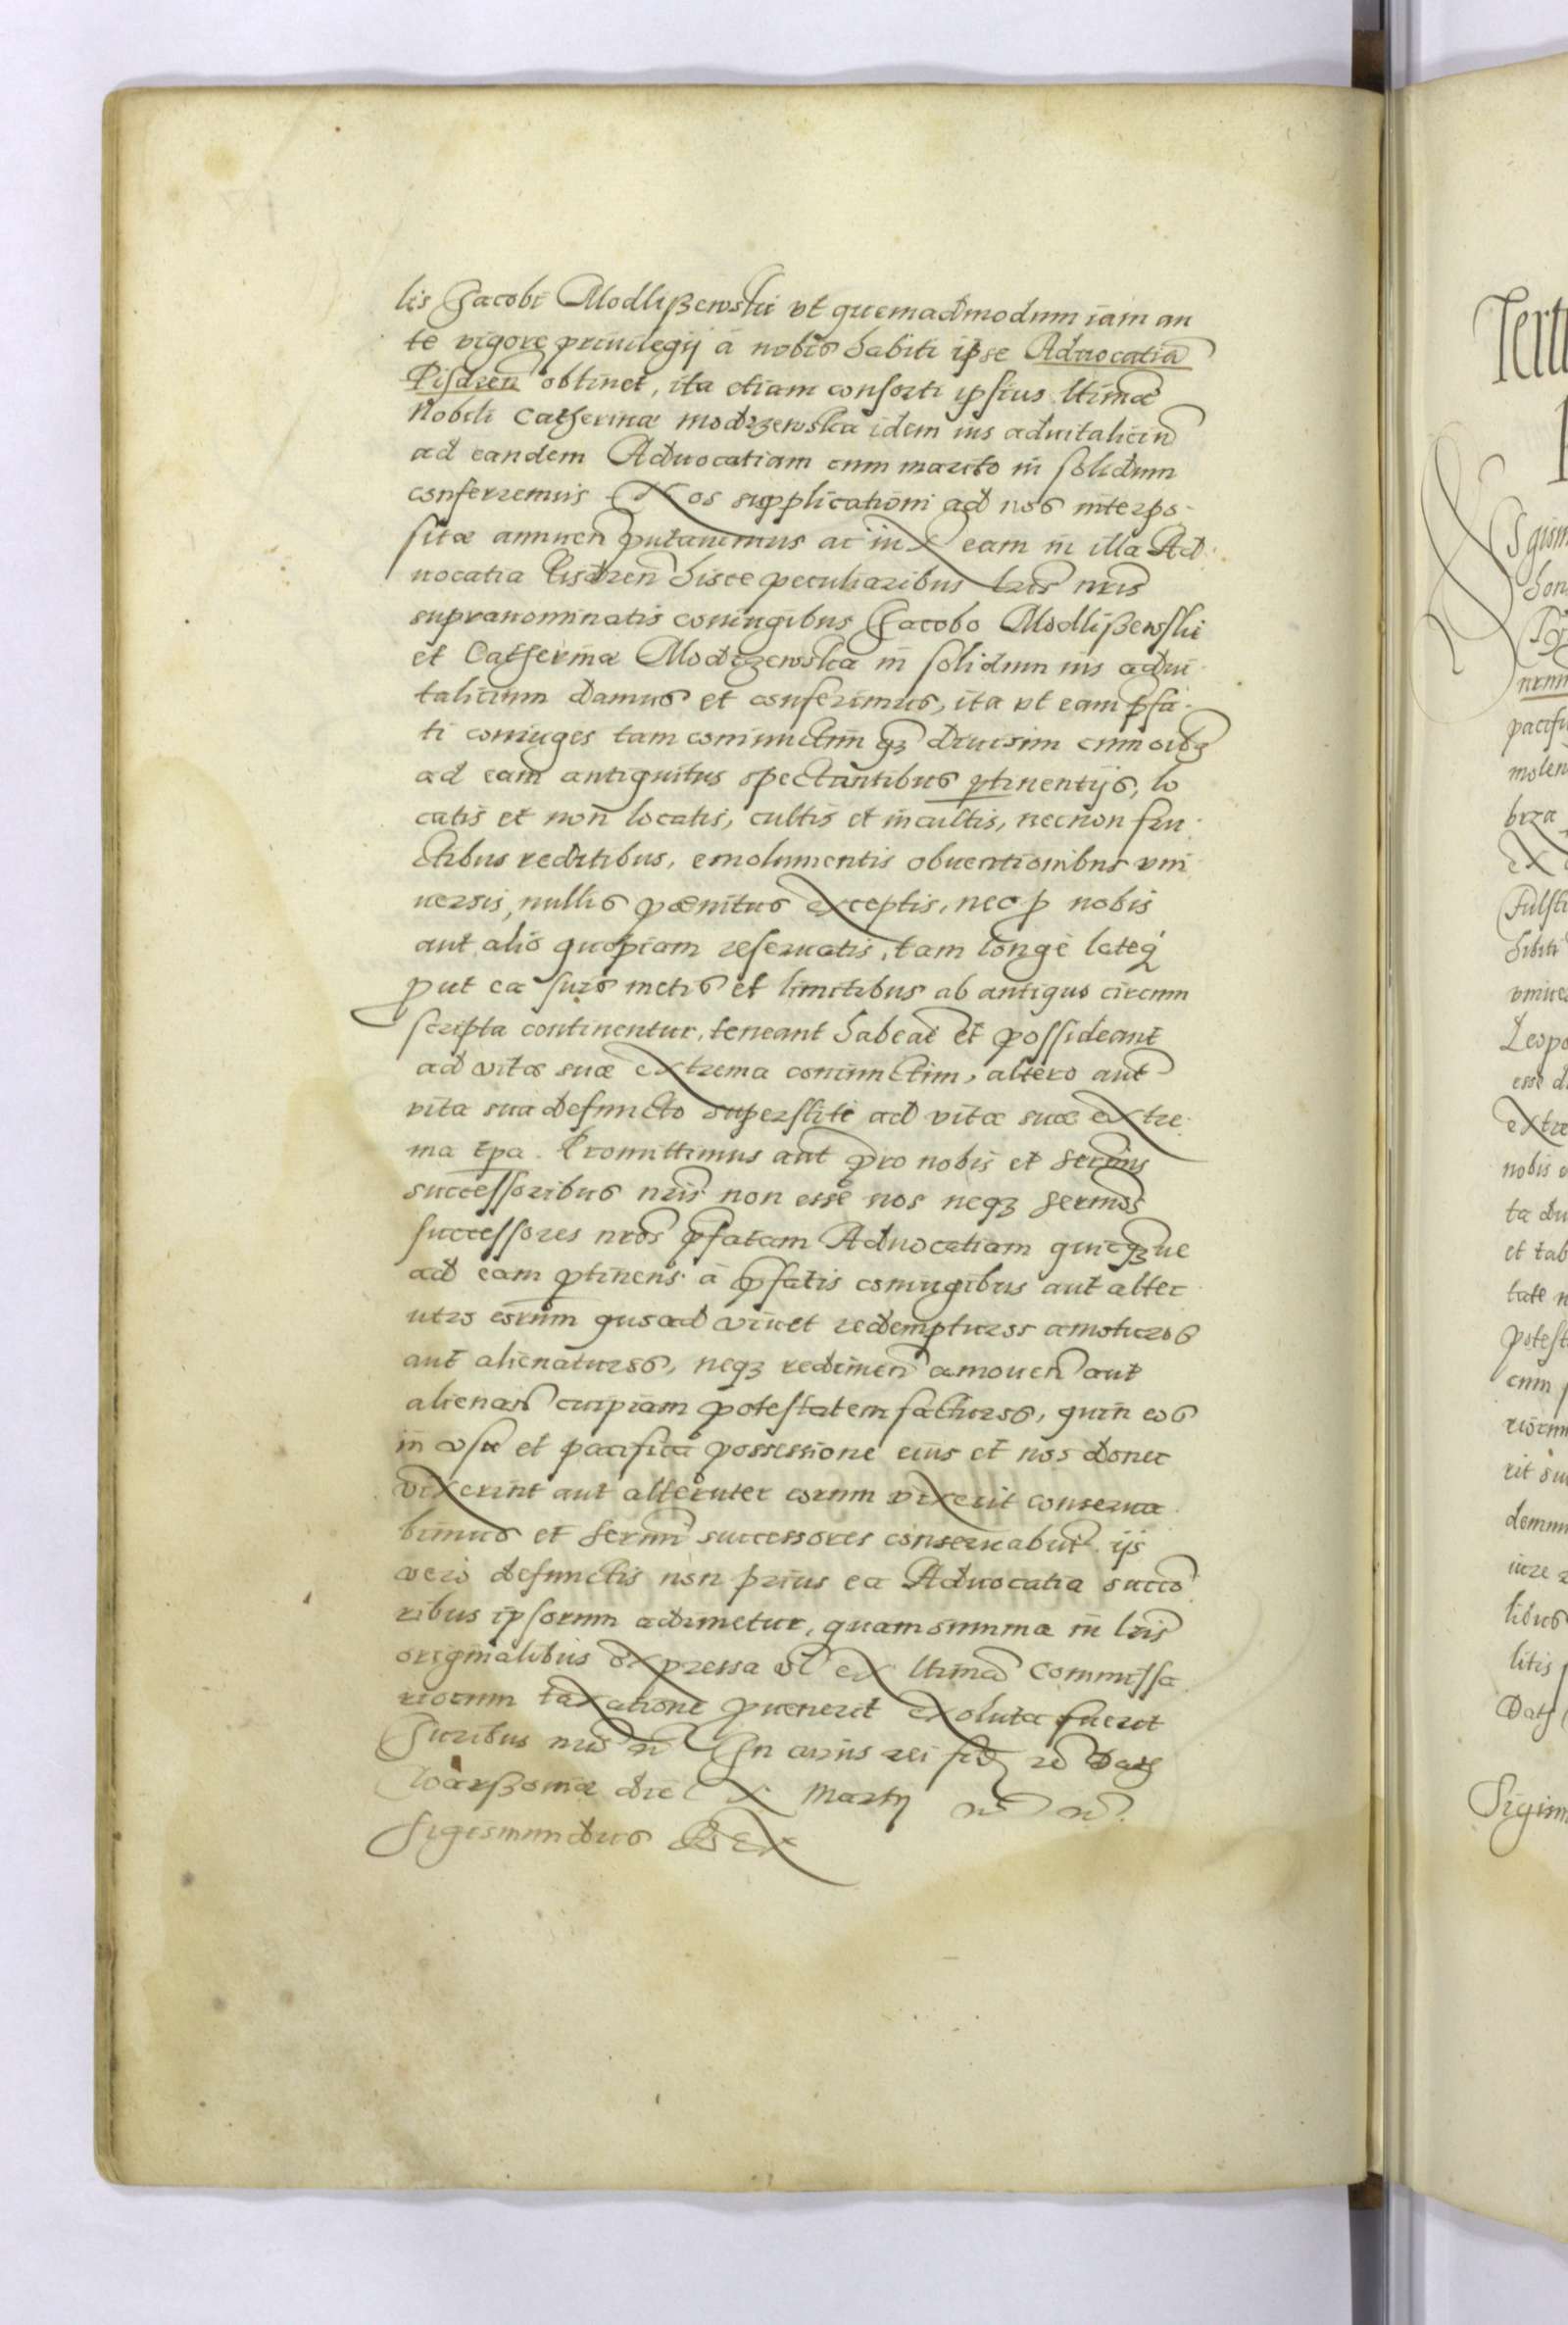 lis Jacobi Modlißewski vt quemadmodum iam an
te vigore priuilegij à nobis habiti ipse Aduocatiã
Pisdreñ obtinet, ita etiam consorti ipsius ltimæ
Nobili Catherinæ Modrzewska idem ius aduitaliciũ
ad eandem Aduocatiam cum marito in solidum
conferremus. Nos supplicationi ad nos interpo-
sitæ annueñ putauimus ac iux eam in illa Ad-
uocatia Pisdreñ hisce peculiaribus lris nris
supranominatis coniugibus Jacobo Modlißewski
et Catherinæ Modrzewska in solidum ius adui
talicium damus et conferimus, ita vt eam pfa-
ti coniuges tam coniunctim qz diuisim cum oibz
ad eam antiquitus spectantibus ptinentijs, lo
catis et non locatis, cultis et incultis, necnon fru-
ctibus reditibus, emolumentis obuentionibus vni
uersis, nullis pœnitus exceptis, nec p nobis
aut alio quopiam reseruatis, tam longè lateq
put ea suis metis et limitibus ab antiquo circum
scripta continentur, teneant habeãt et possideant
ad vitæ suæ extrema coniunctim, altero aut
vita sua defuncto superstite ad vitæ suæ extre-
ma tpa. Promittimus aut pro nobis et sermis
successoribus nris non esse nos neqz sermos
successores nros pfatam Aduocatiam quicqz ue
ad eam ptinens à pfatis coniugibus aut alter
utro eorum quoad viuet redempturos amoturos
aut alienaturos, neqz redimeñ amoueñ aut
alienañ cuipiam potestatem facturos, quin eos
in vsu et pacifica possessione eius et nos donec
vixerint aut alteruter eorum vixerit conserua
bimus et sermi successores conseruabunt. ijs
vero defunctis non prius ea Aduocatia succo
ribus ipsorum adimetur, quam summa in lris
originalibus expressa vl ex ltimã Commissa
riorum taxatione puenerit exoluta fuerit
Juribus nris rc In cuius rei fidz rc Datz
Warßouiæ die X Martij rc rc.
Sigismundus Rex